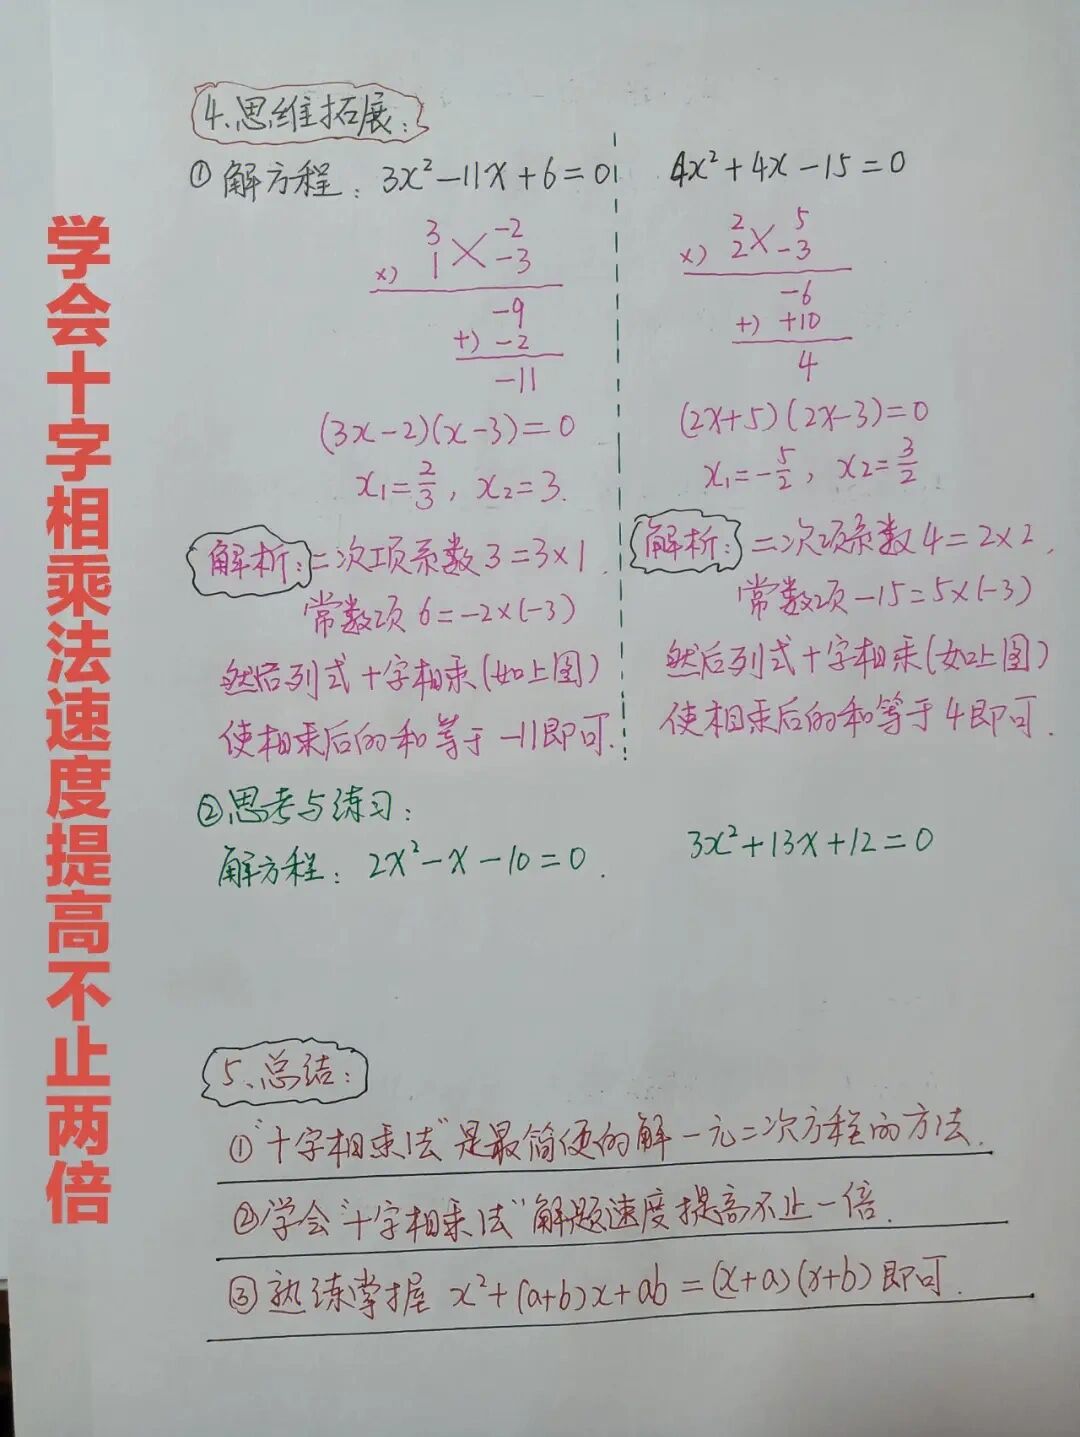 学会十字相乘法速度提高不止两倍
4.思维拓展:
①解方程: 3x²-11x+6=0
3 -2
×) 1 -3
-9
+) -2
-11
(3x-2)(x-3)=0
x₁=2/3, x₂=3.
解析: 二次项系数3=3×1.
常数项6=-2×(-3)
然后列式十字相乘(如上图)
使相乘后的和等于-11即可.
4x²+4x-15=0
2 5
×) 2 -3
-6
+) +10
4
(2x+5)(2x-3)=0
x₁=-5/2, x₂=3/2
解析: 二次项系数4=2×2.
常数项-15=5×(-3)
然后列式十字相乘(如上图)
使相乘后的和等于4即可.
②思考与练习:
解方程: 2x²-x-10=0.
3x²+13x+12=0
5、总结:
①"十字相乘法"是最简便的解一元二次方程的方法.
②学会"十字相乘法"解题速度提高不止一倍.
③熟练掌握 x²+(a+b)x+ab=(x+a)(x+b)即可.